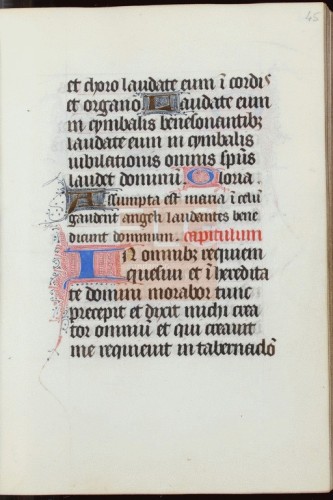 45
et choro laudate eum ī cordis
et organo Laudate eum
in cymbalis benesonantibꝫ
laudate eum in cymbalis
iubilationis omnis sp̄us
laudet dominū
Assumpta est maria ī celū
gaudent angeli laudantes bene
dicunt dominum. capitulum
IN omnibꝫ requiem
quesiui et ī heredita
te domini morabor tunc
precepit et dixit michi crea
tor omniū et qui creauit
me requieuit in tabernaclō